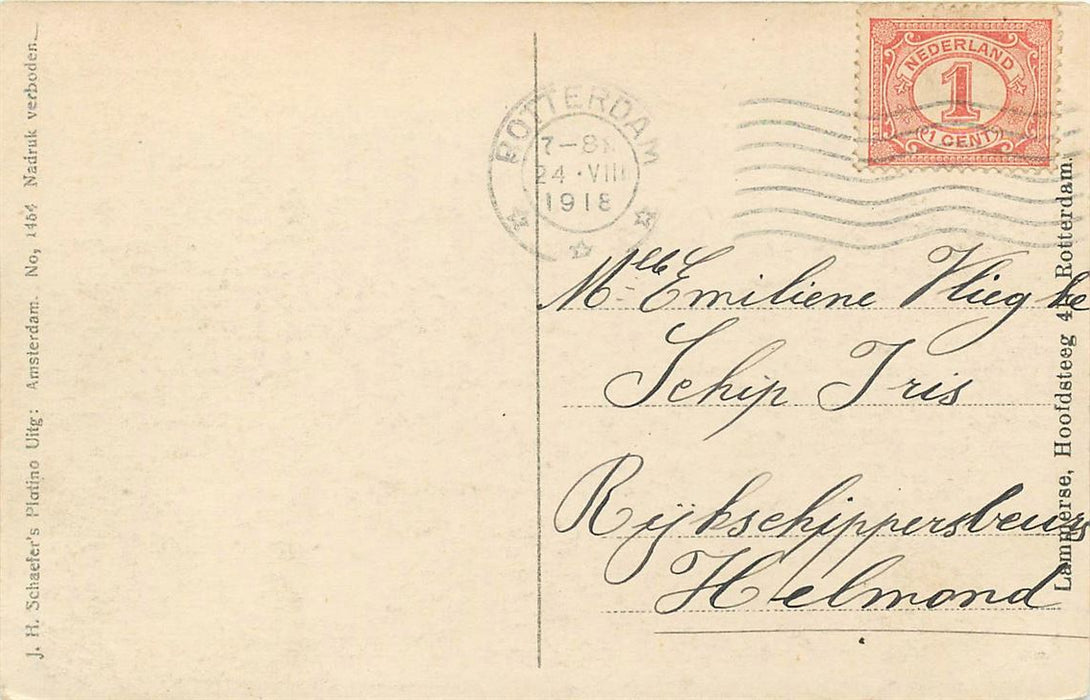 J. H. Schaefer's Platino Uitg: Amsterdam. No, 1454 Nadruk verboden.
ROTTERDAM
7-8
24 · VIII
1918
NEDERLAND
1
1 CENT
Mlle Emiliene Vlieghe
Schip Iris
Rijkschippersbeurs
Helmond
Lammerse, Hoofdsteeg 4, Rotterdam.